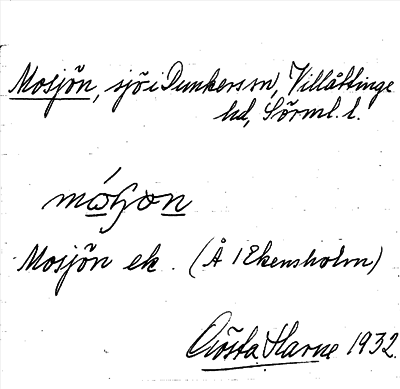 Mosjön, sjö i Dunker sn, Villåttinge
hd, Sörml. l.
Mosjön ek. (Å 1 Ekensholm)
Gösta Harne 1932.